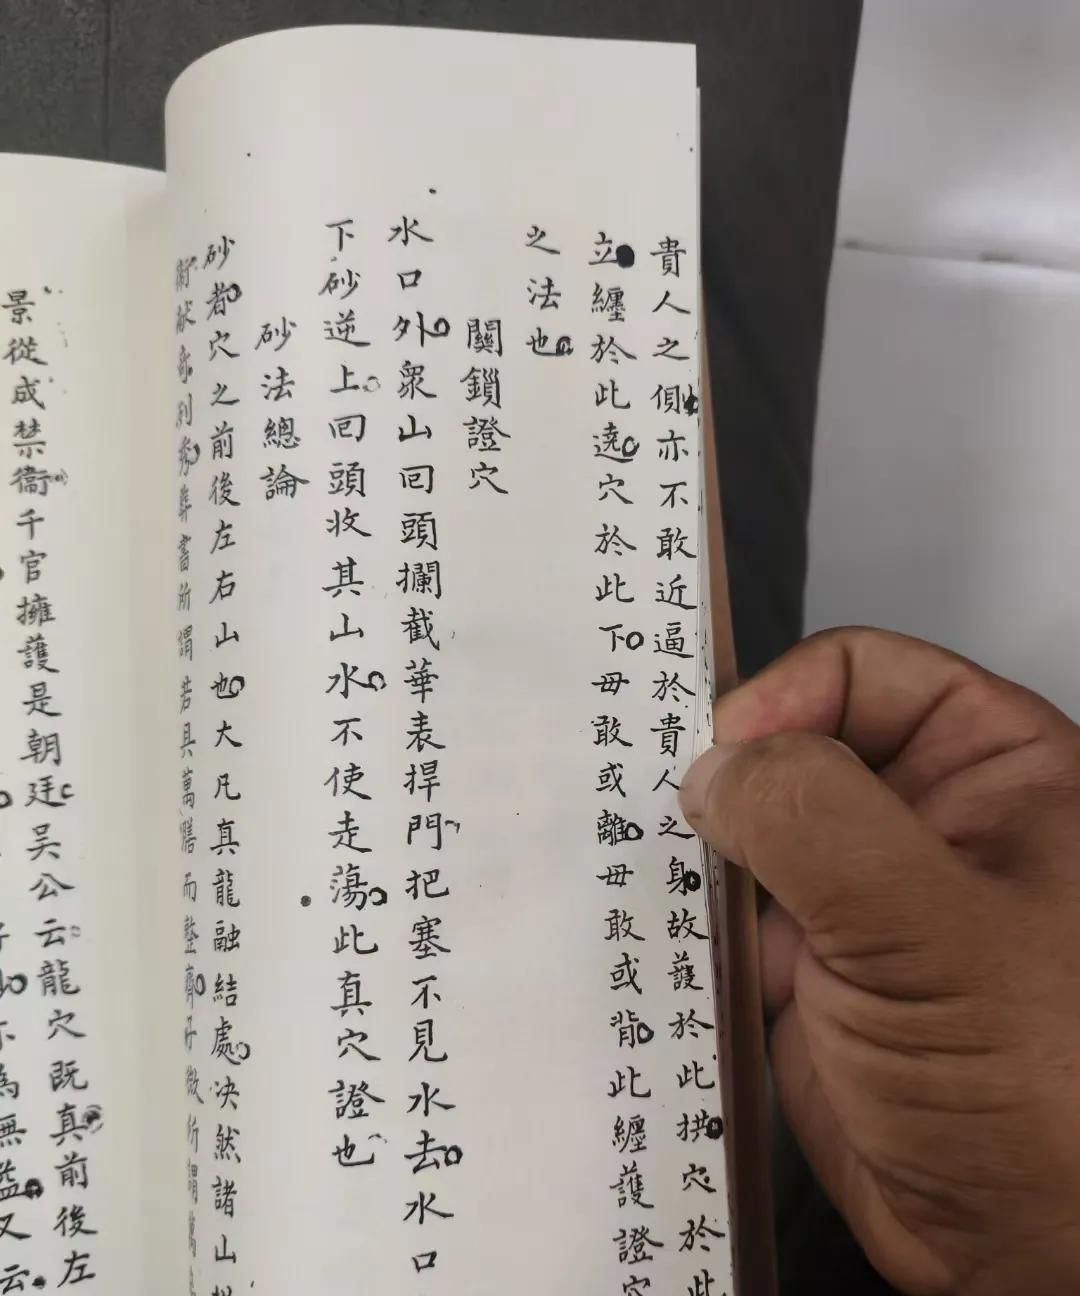 貴人之側亦不敢近逼於貴人之身故護於此拱穴於此
立纏於此遶穴於此下毋敢或離毋敢或背此纏護證穴
之法也
關鎖證穴
水口外衆山回頭攔截華表捍門把塞不見水去水口
下砂逆上回頭收其山水不使走蕩此真穴證也
砂法總論
砂者穴之前後左右山也大凡真龍融結處决然諸山
獻奇列秀葬書所謂若具萬膳而整齊子微所謂萬
景從成禁衞千官擁護是朝廷吳公云龍穴既真前後左
為無
又云